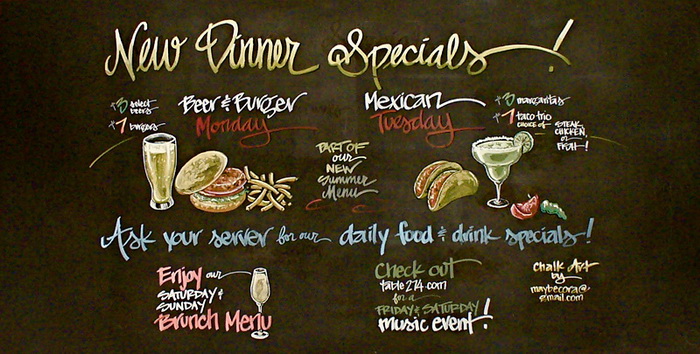 New Dinner Specials!
$3 select
beers
$7 burgers
Beer & Burger
Monday
Mexican
Tuesday
$3 margaritas
$7 taco trio
CHOICE OF STEAK,
CHICKEN
or
FISH!
PART OF
our
NEW
Summer
Menu
Ask your server for our daily food & drink specials!
Enjoy our
SATURDAY &
SUNDAY
Brunch Menu
Check out
table274.com
for a
FRIDAY & SATURDAY
music event!
Chalk Art
by
maybecora@
gmail.com